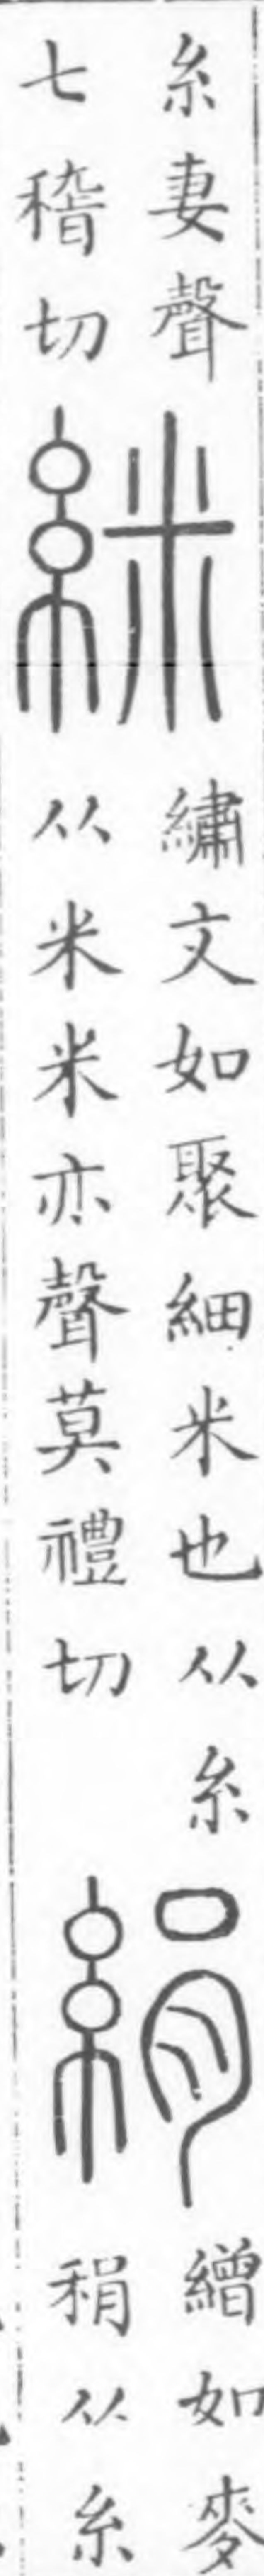 糸妻聲
七稽切
絖
繡文如聚細米也从糸
从米米亦聲莫禮切
絹
繒如麥
稍从糸